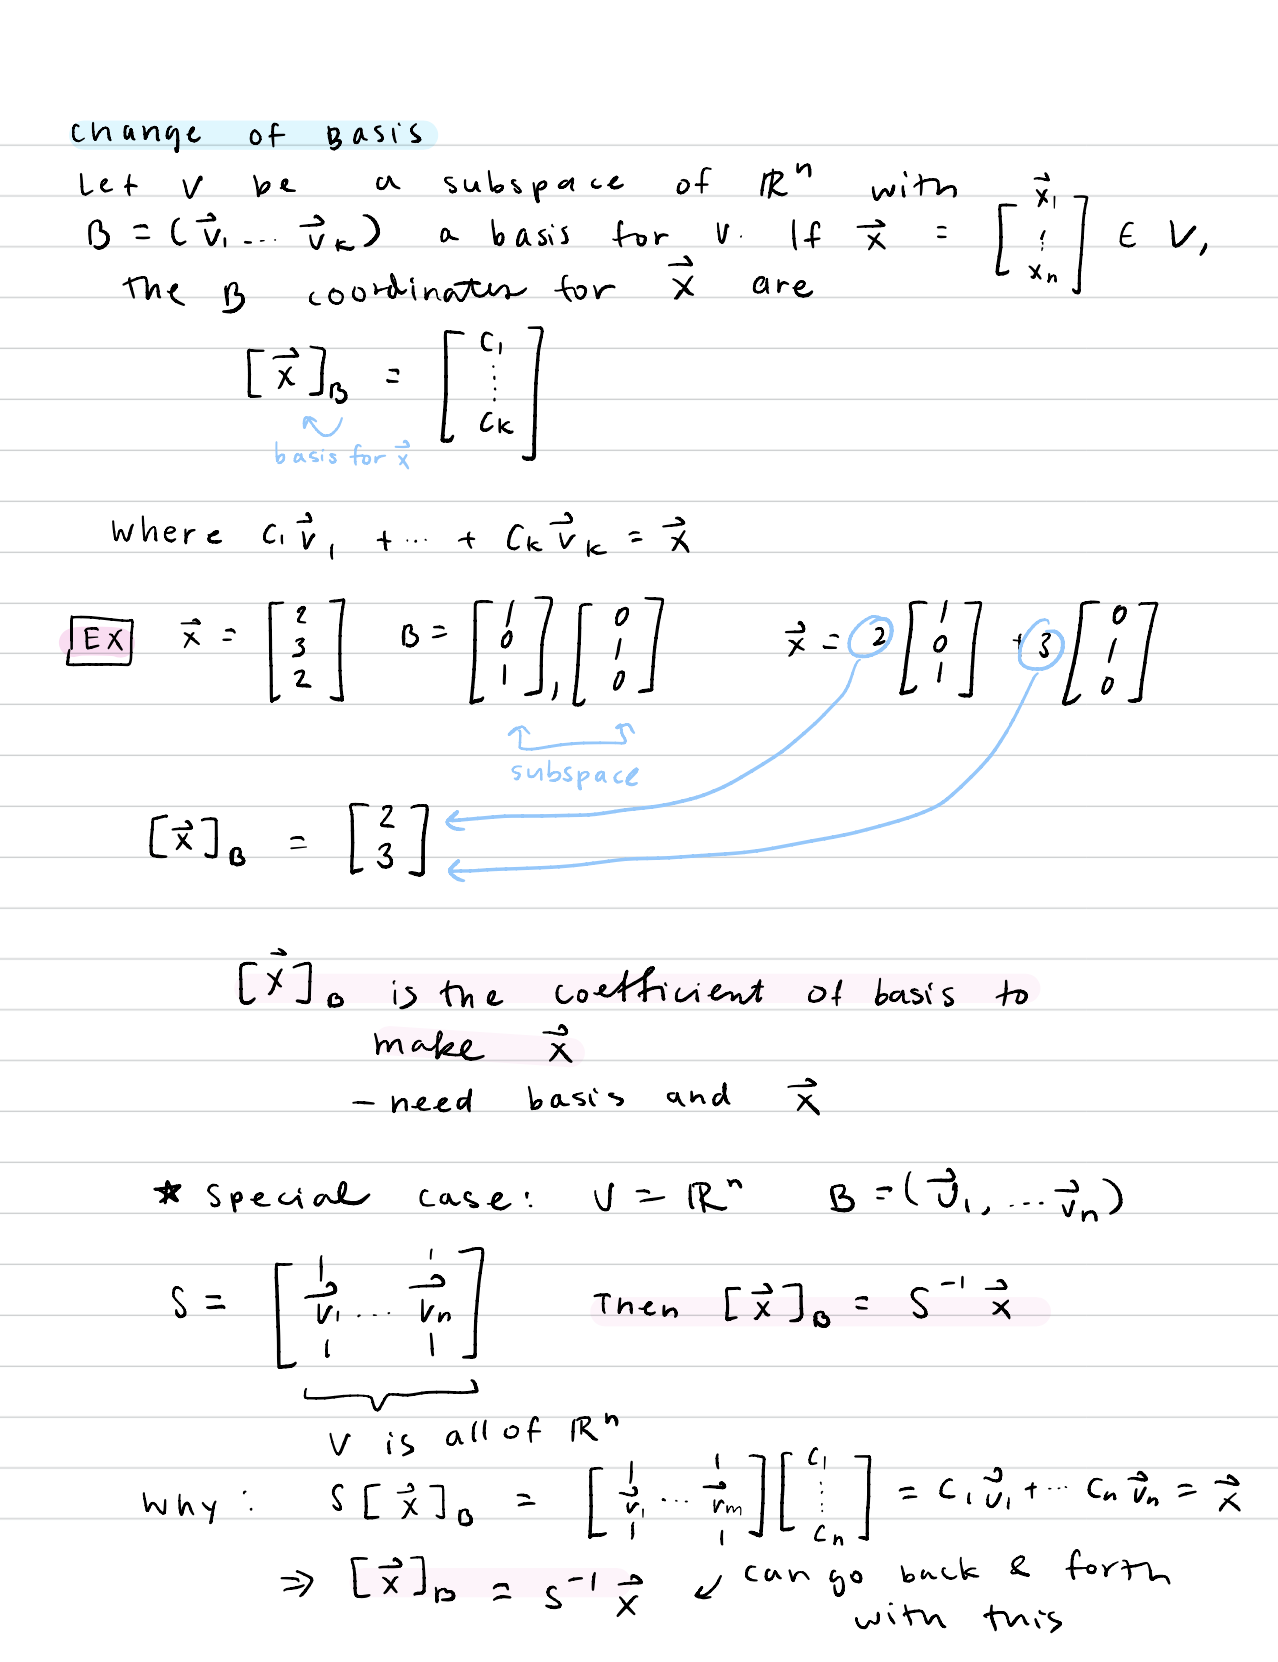 Change of Basis
Let V be a subspace of ℝⁿ with
B = (v⃗₁ ... v⃗ₖ) a basis for V. If x⃗ = [x⃗₁ ⋮ xₙ] ∈ V,
the B coordinates for x⃗ are
[x⃗]_B = [c₁ ⋮ cₖ]
basis for x⃗
where c₁v⃗₁ + ... + cₖv⃗ₖ = x⃗
EX x⃗ = [2 3 2] B = [1 0 1], [0 1 0] x⃗ = 2 [1 0 1] + 3 [0 1 0]
subspace
[x⃗]_B = [2 3]
[x⃗]_B is the coefficient of basis to
make x⃗
- need basis and x⃗
★ special case: V = ℝⁿ B = (v⃗₁, ... v⃗ₙ)
S = [v⃗₁ ... v⃗ₙ] Then [x⃗]_B = S⁻¹ x⃗
V is all of ℝⁿ
Why: S[x⃗]_B = [v⃗₁ ... v⃗ₘ] [c₁ ⋮ cₙ] = c₁v⃗₁ + ... cₙv⃗ₙ = x⃗
⇒ [x⃗]_B = S⁻¹ x⃗ ↙ can go back & forth
with this